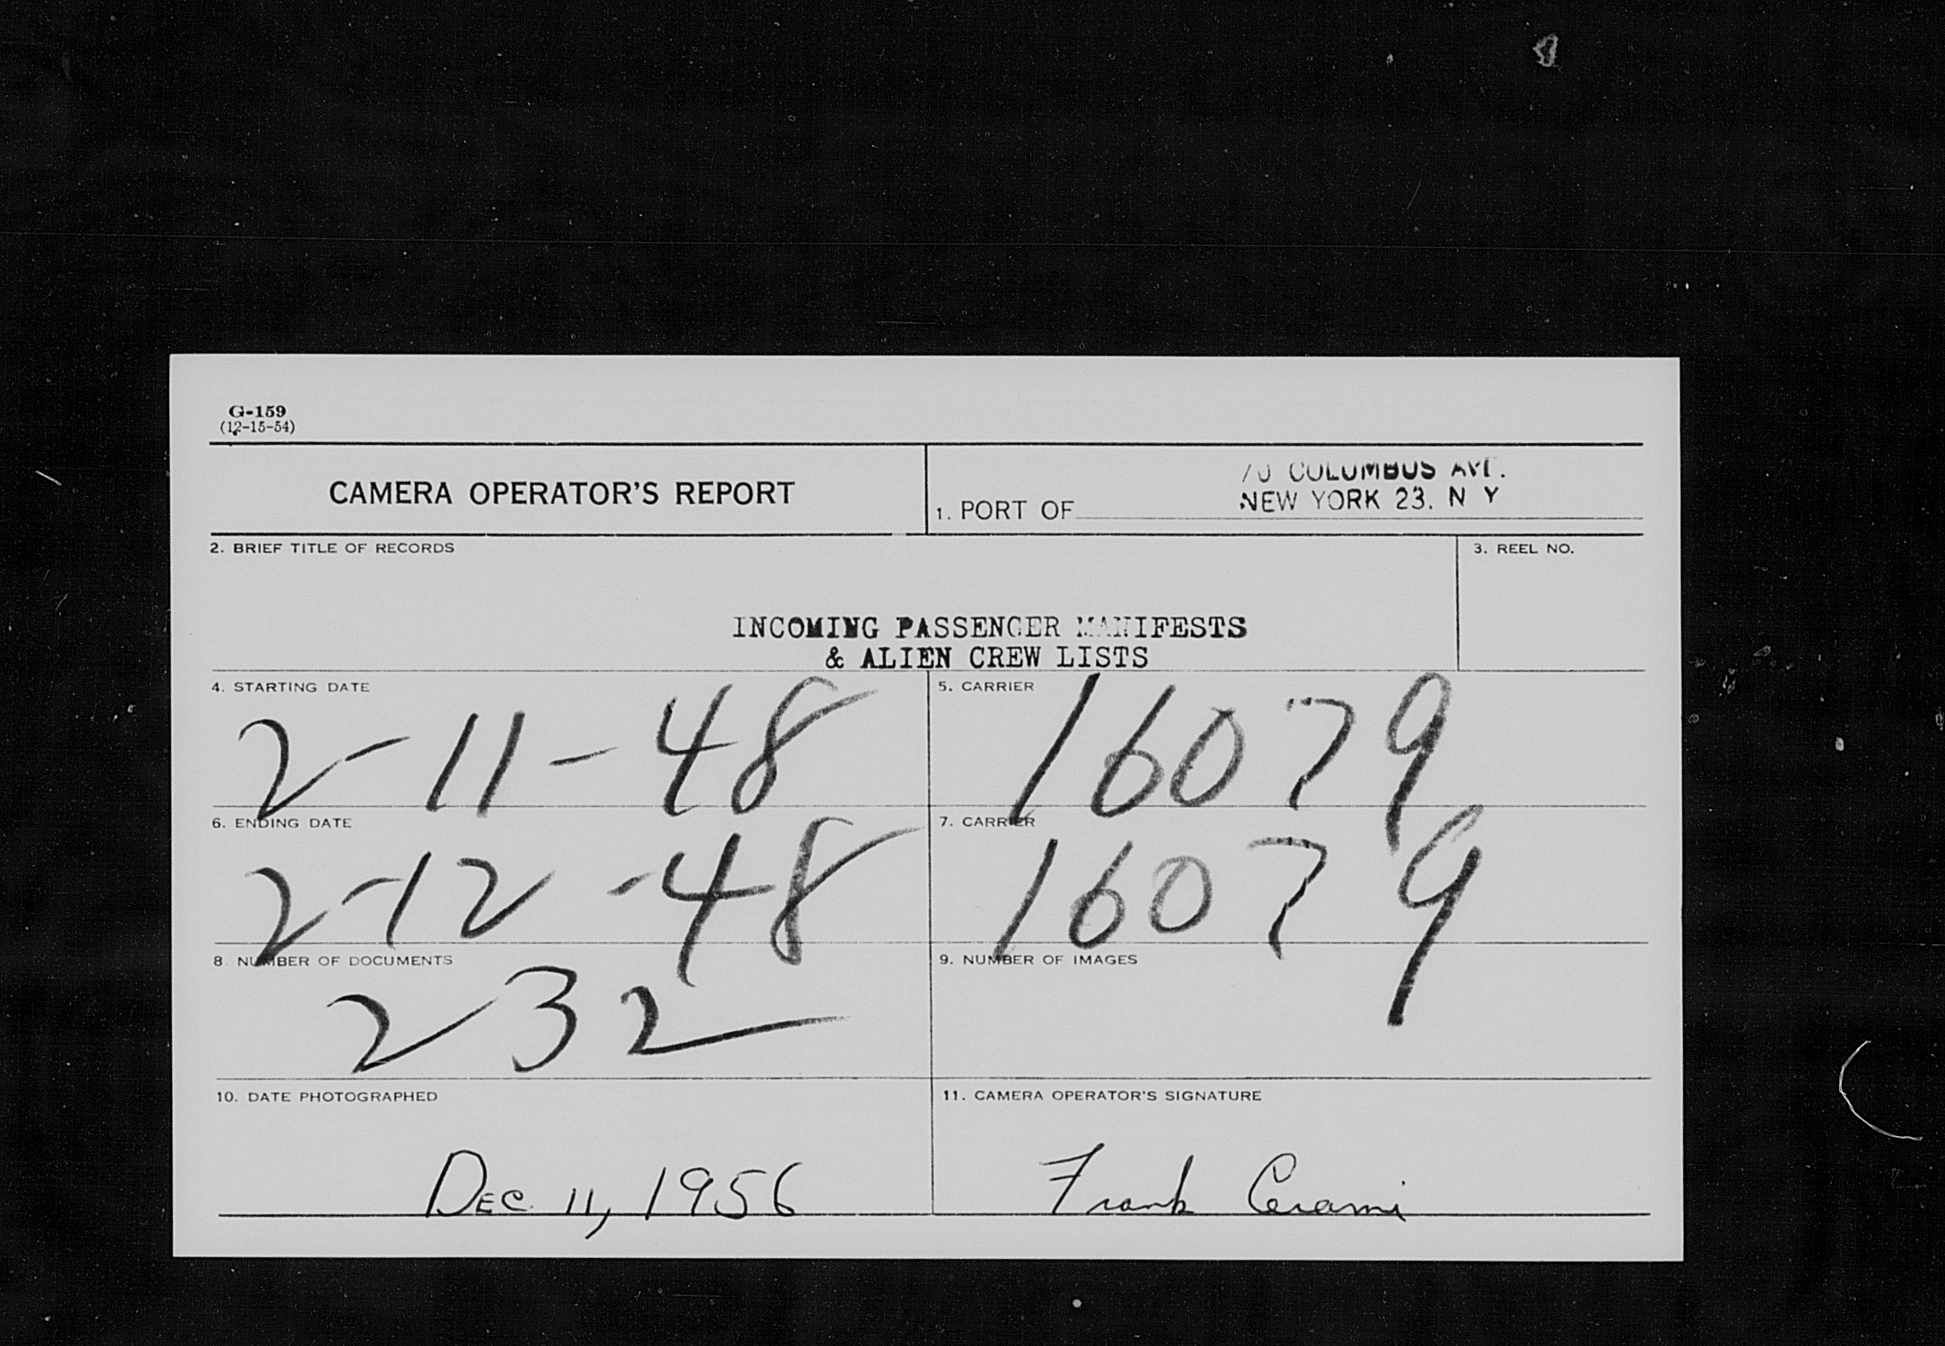 G-159
(12-15-54)
CAMERA OPERATOR'S REPORT
70 COLUMBUS AVE.
1. PORT OF NEW YORK 23. N Y
2. BRIEF TITLE OF RECORDS
3. REEL NO.
INCOMING PASSENGER MANIFESTS
& ALIEN CREW LISTS
4. STARTING DATE
2-11-48
5. CARRIER
16079
6. ENDING DATE
2-12-48
7. CARRIER
16079
8. NUMBER OF DOCUMENTS
232
9. NUMBER OF IMAGES
10. DATE PHOTOGRAPHED
DEC. 11, 1956
11. CAMERA OPERATOR'S SIGNATURE
Frank Cerami